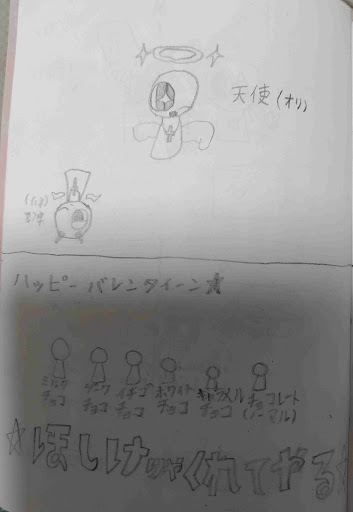 天使(オリ)
ハッピーバレンタイーン☆
ミルク
チョコ
ダーク
チョコ
イチゴ
チョコ
ホワイト
チョコ
キャラメル
チョコ
チョコレート
(ノーマル)
☆ほしけりゃくれてやる